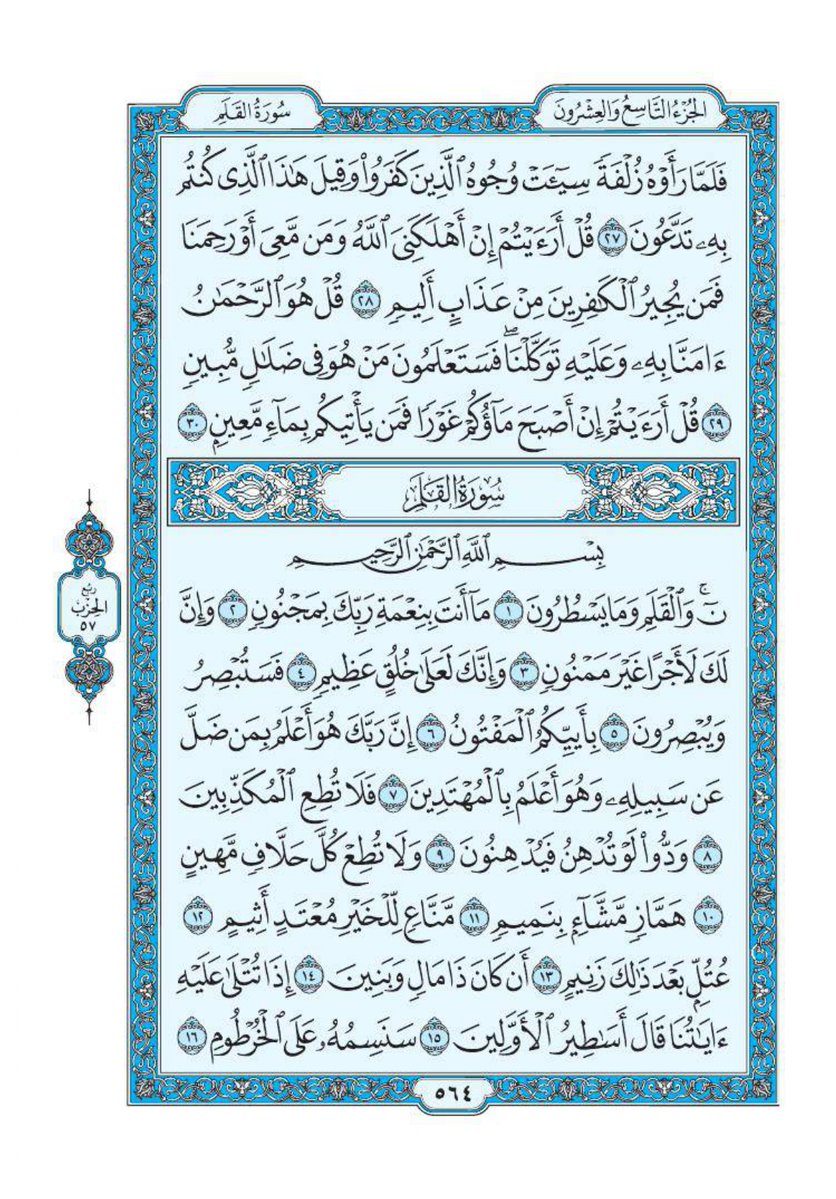 الجُزْءُ التَّاسِعُ وَالعِشْرُونَ
سُورَةُ القَلَمِ
فَلَمَّا رَأَوْهُ زُلْفَةً سِيٓـَٔتْ وُجُوهُ ٱلَّذِينَ كَفَرُوا۟ وَقِيلَ هَٰذَا ٱلَّذِى كُنتُم
بِهِۦ تَدَّعُونَ ٢٧ قُلْ أَرَءَيْتُمْ إِنْ أَهْلَكَنِىَ ٱللَّهُ وَمَن مَّعِىَ أَوْ رَحِمَنَا
فَمَن يُجِيرُ ٱلْكَٰفِرِينَ مِنْ عَذَابٍ أَلِيمٍ ٢٨ قُلْ هُوَ ٱلرَّحْمَٰنُ
ءَامَنَّا بِهِۦ وَعَلَيْهِ تَوَكَّلْنَا ۖ فَسَتَعْلَمُونَ مَنْ هُوَ فِى ضَلَٰلٍ مُّبِينٍ
٢٩ قُلْ أَرَءَيْتُمْ إِنْ أَصْبَحَ مَآؤُكُمْ غَوْرًا فَمَن يَأْتِيكُم بِمَآءٍ مَّعِينٍۭ ٣٠
سُورَةُ القَلَمِ
بِسْمِ ٱللَّهِ ٱلرَّحْمَٰنِ ٱلرَّحِيمِ
نٓ ۚ وَٱلْقَلَمِ وَمَا يَسْطُرُونَ ١ مَآ أَنتَ بِنِعْمَةِ رَبِّكَ بِمَجْنُونٍ ٢ وَإِنَّ
لَكَ لَأَجْرًا غَيْرَ مَمْنُونٍ ٣ وَإِنَّكَ لَعَلَىٰ خُلُقٍ عَظِيمٍ ٤ فَسَتُبْصِرُ
وَيُبْصِرُونَ ٥ بِأَييِّكُمُ ٱلْمَفْتُونُ ٦ إِنَّ رَبَّكَ هُوَ أَعْلَمُ بِمَن ضَلَّ
عَن سَبِيلِهِۦ وَهُوَ أَعْلَمُ بِٱلْمُهْتَدِينَ ٧ فَلَا تُطِعِ ٱلْمُكَذِّبِينَ
٨ وَدُّوا۟ لَوْ تُدْهِنُ فَيُدْهِنُونَ ٩ وَلَا تُطِعْ كُلَّ حَلَّافٍ مَّهِينٍ
١٠ هَمَّازٍ مَّشَّآءٍۭ بِنَمِيمٍ ١١ مَّنَّاعٍ لِّلْخَيْرِ مُعْتَدٍ أَثِيمٍ ١٢
عُتُلٍّۭ بَعْدَ ذَٰلِكَ زَنِيمٍ ١٣ أَن كَانَ ذَا مَالٍ وَبَنِينَ ١٤ إِذَا تُتْلَىٰ عَلَيْهِ
ءَايَٰتُنَا قَالَ أَسَٰطِيرُ ٱلْأَوَّلِينَ ١٥ سَنَسِمُهُۥ عَلَى ٱلْخُرْطُومِ ١٦
رُبع
الحِزْبِ
٥٧
٥٦٤